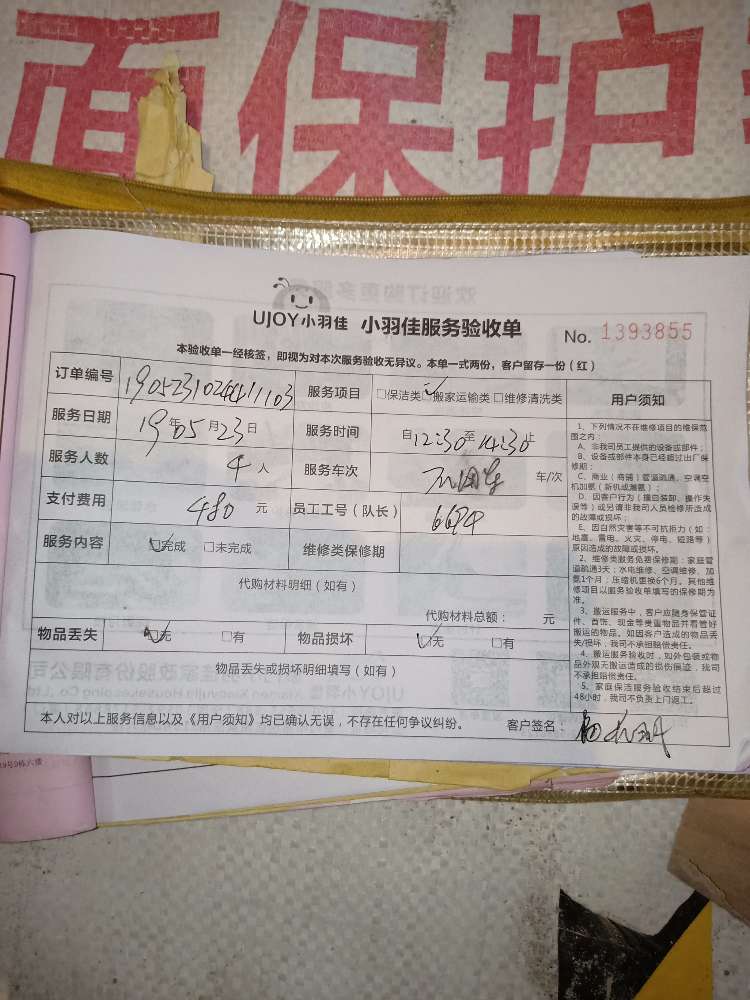 面保护
UJOY小羽佳 小羽佳服务验收单 No. 1393855
本验收单一经核签，即视为对本次服务验收无异议。本单一式两份，客户留存一份（红）
订单编号 服务项目 □保洁类□搬家运输类□维修清洗类 用户须知
服务日期 19年05月23日 服务时间 自12:30至14:30止
服务人数 4人 服务车次 车/次
支付费用 480元 员工工号（队长） 6694
服务内容 □完成 □未完成 维修类保修期
代购材料明细（如有）
代购材料总额： 元
物品丢失 □无 □有 物品损坏 □无 □有
物品丢失或损坏明细填写（如有）
本人对以上服务信息以及《用户须知》均已确认无误，不存在任何争议纠纷。 客户签名：
1、下列情况不在维修项目的维保范
围之内：
A、非我司员工提供的设备或部件；
B、设备或部件本身已经超过出厂保
修期；
C、商业（商铺）管道疏通、空调空
机加氨（新机或漏氨）；
D、因客户行为（擅自装卸、操作失
误等）或另请非我司人员检修所造成
的故障或损坏；
E、因自然灾害等不可抗拒力（如：
地震、雷电、火灾、停电、短路等）
原因造成的故障或损坏。
2、维修类服务免费保修期：家庭管
道疏通3天；水电维修、空调维修、加
氨1个月；压缩机更换6个月。其他维
修项目以服务验收单填写的保修期为
准。
3、搬运服务中，客户应随身保管证
件、首饰、现金等贵重物品并看管好
搬运的物品。如因客户造成的物品丢
失/损坏，我司不承担赔偿责任。
4、搬运服务验收时，如外包装或物
品外观无搬运造成的损伤痕迹，我司
不承担赔偿责任。
5、家庭保洁服务验收结束后超过
48小时，我司不负责上门返工。